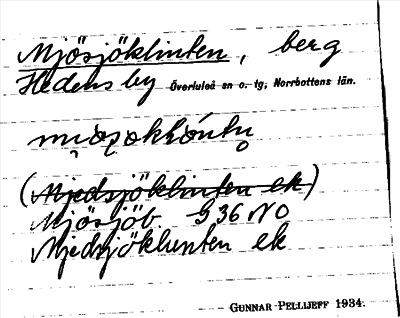 Mjösjöklinten, berg
Hedens by Överluleå sn o. tg, Norrbottens län.
(Mjedsjöklinten ek)
Mjösjöb S 36 NO
Mjedsjöklinten ek
GUNNAR PELLIJEFF 1934.